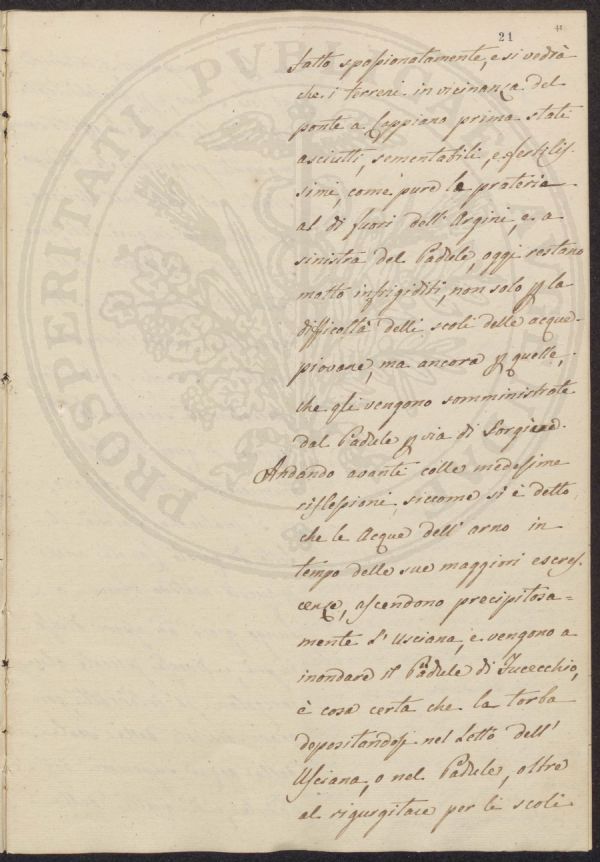 21
fatto spassionatamente, e si vedrà
che i terreni in vicinanza del
ponte a Cappiano prima stati
asciutti, sementabili, e fertilis-
simi, come pure le praterie
al di fuori dell' Argini, e a
sinistra del Padule, oggi restano
molto infrigiditi, non solo p la
difficoltà delli scoli delle acque
piovane, ma ancora p quelle,
che gli vengono somministrate
dal Padule p via di Sorgive.
Andando avanti colle medesime
riflessioni, siccome si è detto,
che le Acque dell' arno in
tempo delle sue maggiori escres-
cenze, ascendono precipitosa=
mente l' Usciana, e vengono a
inondare il Padule di Fucecchio,
è cosa certa che la torba
depositandosi nel Letto dell'
Usciana, o nel Padule, oltre
al rigurgitare per li scoli
PROSPERITATI PVBLICAE AVGENDAE